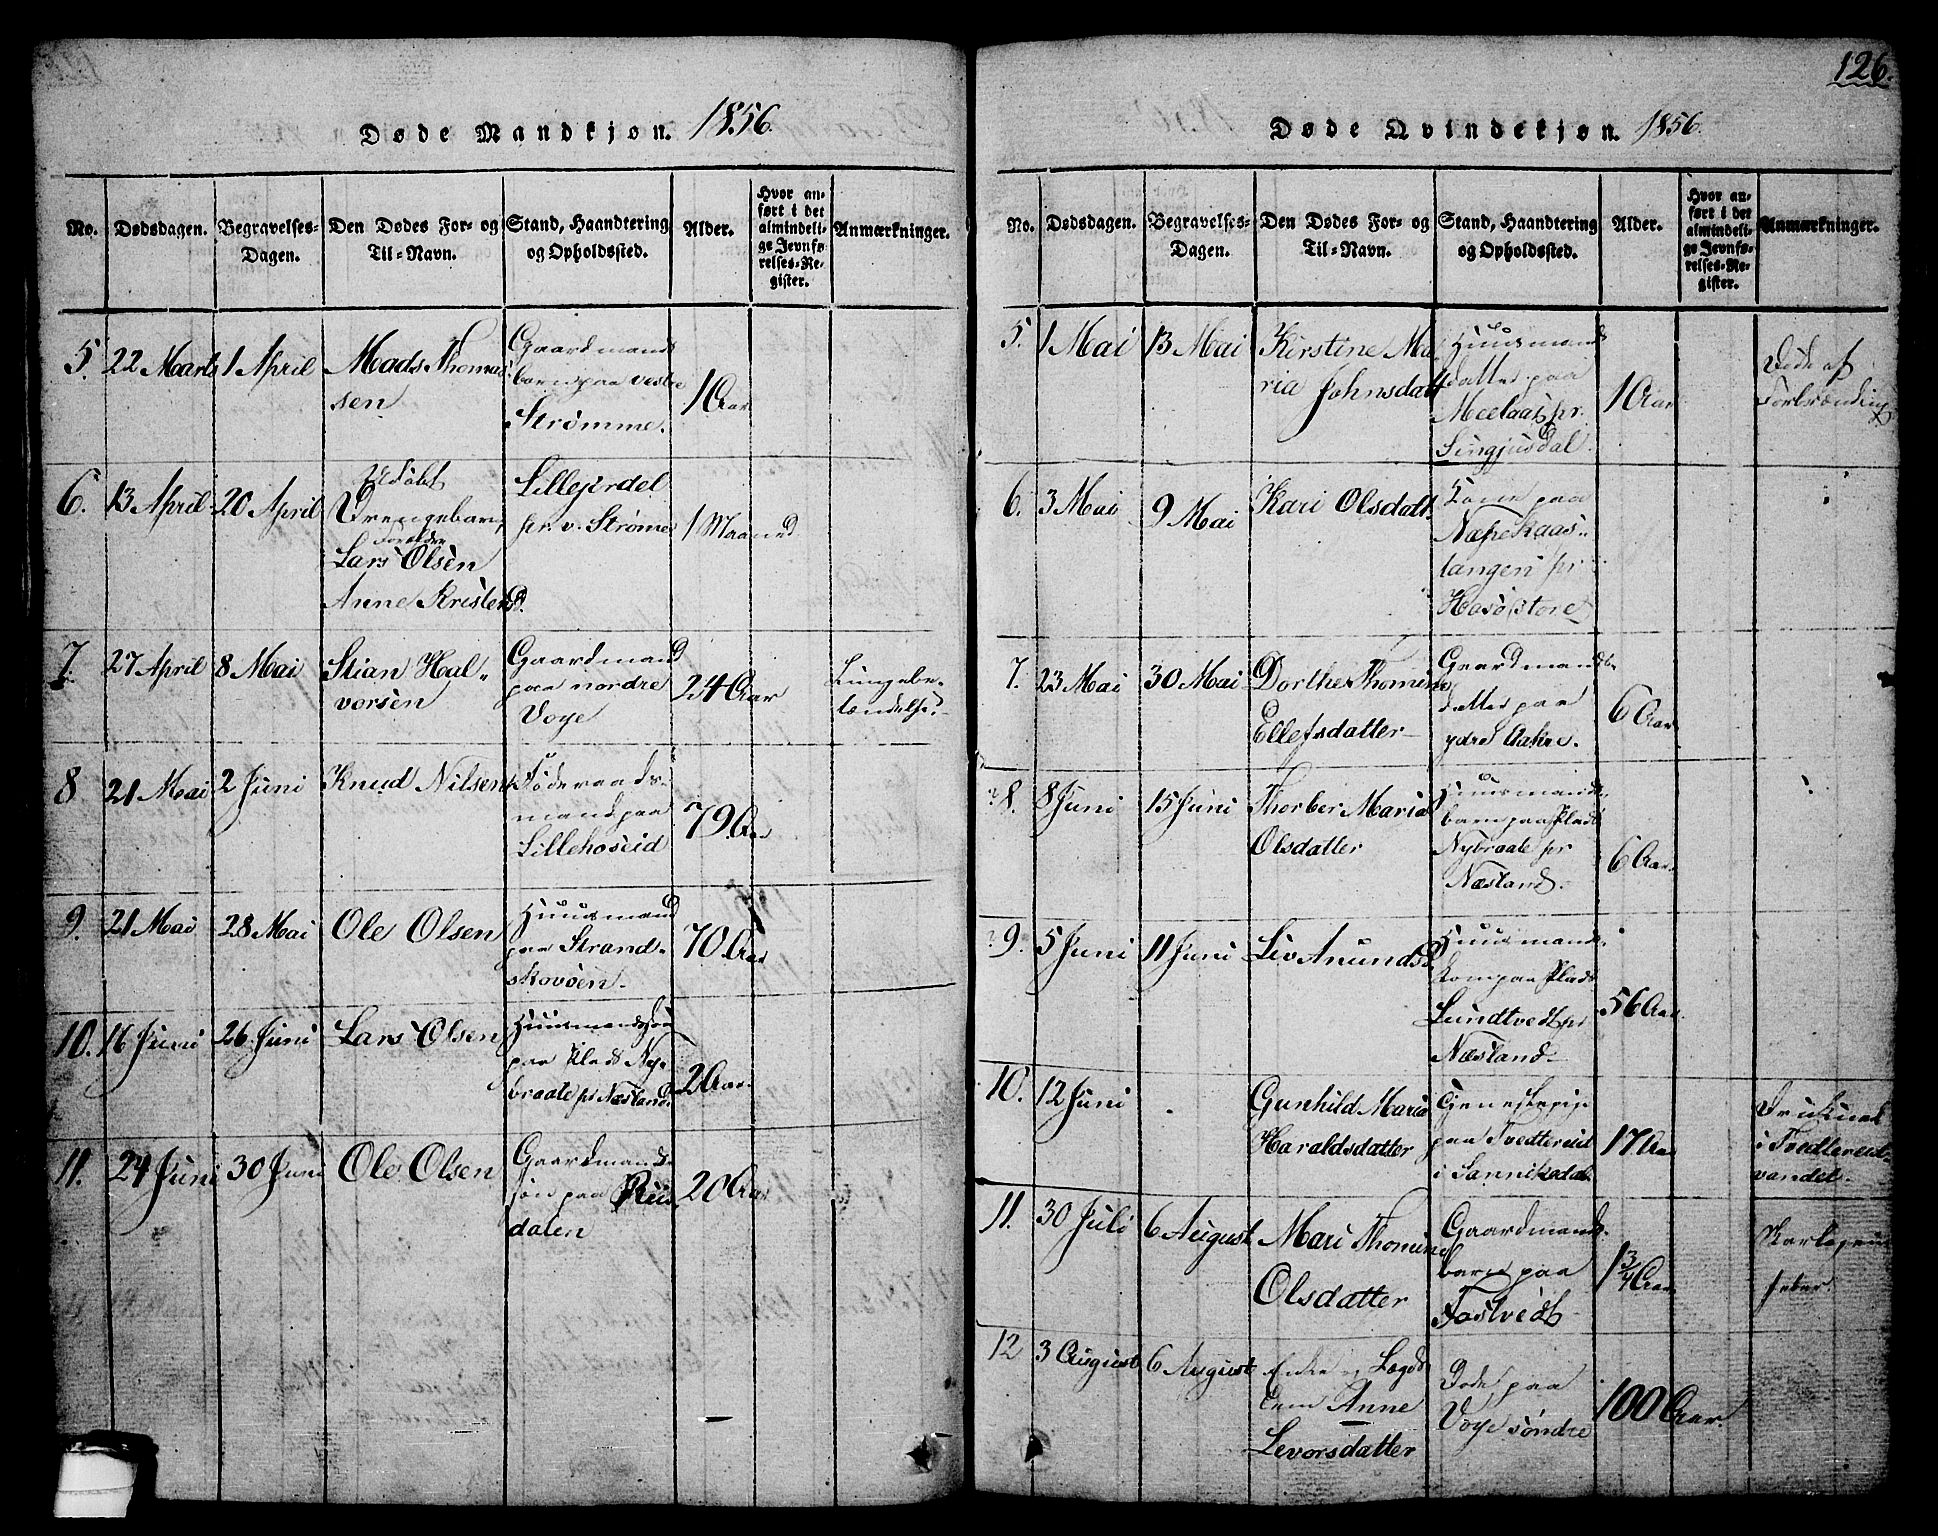 126.
Døde Mandkjøn. 1856.
No.
Dødsdagen.
Begravelses-
Dagen.
Den Dødes For- og
Til-Navn.
Stand, Haandtering
og Opholdssted.
Alder.
Hvor an-
ført i det
almindeli-
ge Jevnfø-
relses-Re-
gister.
Anmærkninger.
5. 22 Marts 1 April
Mads Thomas
sen
Gaardmands
barn paa vestre
Strømme.
1 Aar
6. 13 April 20 April
Udøbt
Drengebarn,
Forældre
Lars Olsen
Anne Kristensd.
Lillejordel
pr. v. Strøme
1 Maaned
7. 27 April 8 Mai
Stian Hal-
vorsen
Gaardmand
paa nordre
Voje
24 Aar
Lungebe-
tændelse.
8 21 Mai 2 Juni
Knud Nilsen
Føderaads-
mand paa
Lillehoseid
79 Aar
9. 21 Mai 28 Mai
Ole Olsen
Huusmand
paa Strand-
skovøen.
70 Aar
10. 16 Juni 26 Juni
Lars Olsen
Huusmands
paa Plads Ny-
braate pr Næsland.
2 Aar.
11. 24 Juni 30 Juni
Ole Olsen
Gaardmands
søn paa Rui
dalen
20 Aar
Døde Qvindekjøn. 1856.
No.
Dødsdagen.
Begravelses-
Dagen.
Den Dødes For- og
Til-Navn.
Stand, Haandtering
og Opholdssted.
Alder.
Hvor an-
ført i det
almindeli-
ge Jevnfø-
relses-Re-
gister.
Anmærkninger.
5. 1 Mai 13 Mai
Kirstine Ma
ria Johnsdatt
Huusmands
datter paa
Meelaas pr.
Singjusdal.
1 Aar
Døde af
Forbrænding
6. 3 Mai 9 Mai
Kari Olsdatt.
Kone paa
Næpekaas-
tangen pr
Hasø store
7. 23 Mai 30 Mai
Dorthe Thomine
Ellefsdatter
Gaardmands
datter paa
ydre Aakre.
6 Aar
8. 8 Juni 15 Juni
Thorber Maria
Olsdatter
Huusmands
barn paa Plads
Nybraate pr
Næsland.
6 Aar
9. 5 Juni 11 Juni
Liv Anundsd
Huusmands
kone paa Plads
Lundtvedt pr
Næsland.
56 Aar
10. 12 Juni
Gunhild Maria
Haraldsdatter
Tjenestepige
paa Tvedtereid
i Sannikedal
17 Aar
Druknet
i Tvedtereid-
vandet.
11. 30 Juli 6 August
Mari Thomine
Olsdatter
Gaardmands
barn paa
Fostvedt
1 3/4 Aar
Skarlagens
feber.
12 3 August 6 August
Enke og Lægds
lem Anne
Levorsdatter
Døde paa
Voje søndre
100 Aar.